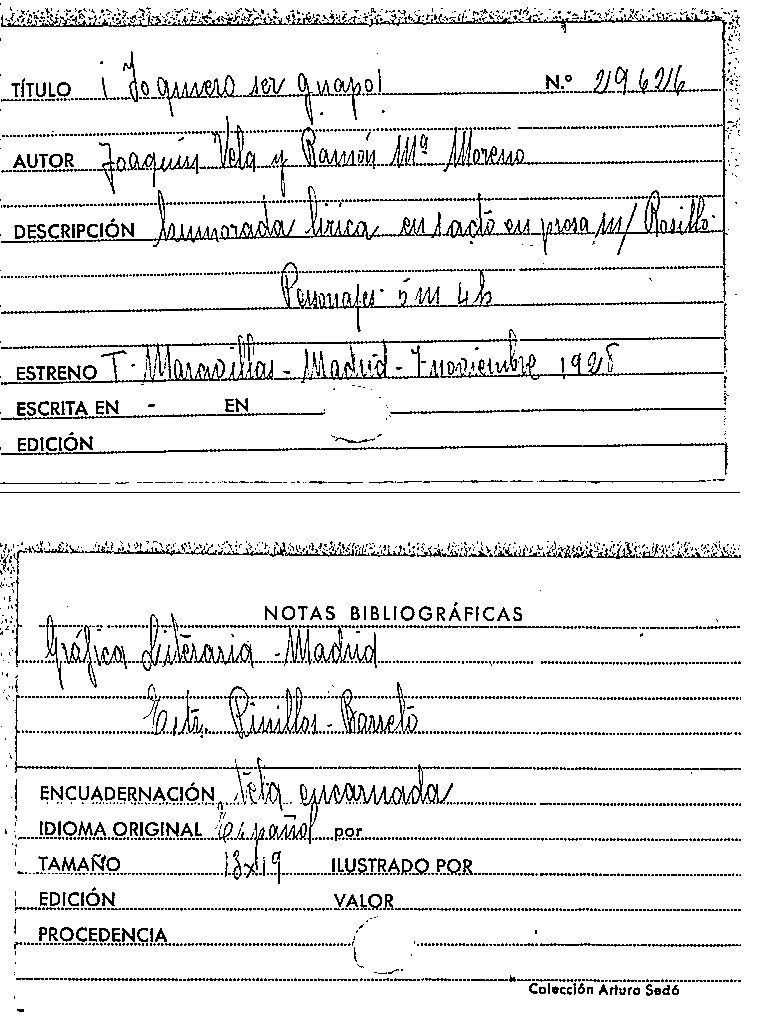 TÍTULO ¡Yo quiero ser guapo! N.º 219626
AUTOR Joaquín Vela y Ramón Mª Moreno
DESCRIPCIÓN humorada lírica en 1 acto en prosa m/ Rosillo
Personajes 5 m 4 h
ESTRENO T. Maravillas - Madrid - 7 noviembre 1928
ESCRITA EN - EN
EDICIÓN
NOTAS BIBLIOGRÁFICAS
Gráfica Literaria - Madrid
Estr. Pinillos - Barreto
ENCUADERNACIÓN Tela encarnada
IDIOMA ORIGINAL Español por
TAMAÑO 13x19 ILUSTRADO POR
EDICIÓN VALOR
PROCEDENCIA
Colección Arturo Sedó